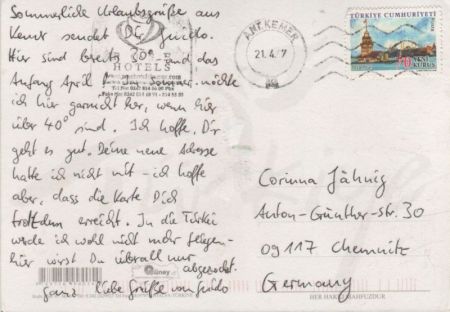 Sommerliche Urlaubsgrüße aus
Kemer sendet Dir Guido.
Hier sind bereits 30° und das
Anfang April. Im Sommer möchte
ich hier garnicht her, wenn hier
über 40° sind. Ich hoffe, Dir
geht es gut. Deine neue Adresse
hatte ich nicht mit - ich hoffe
aber, dass die Karte Dich
trotzdem erreicht. In die Türkei
werde ich wohl nicht mehr fliegen-
hier wirst Du überall nur
abgezockt.
Ganz liebe Grüße von Guido
HOTELS
ANT.KEMER
21.4.
TÜRKİYE CUMHURİYETİ
70 YENİ KURUŞ
Corinna Jähnig
Anton-Günther-str. 30
09117 Chemnitz
Germany
Güney
HER HAKKI MAHFUZDUR